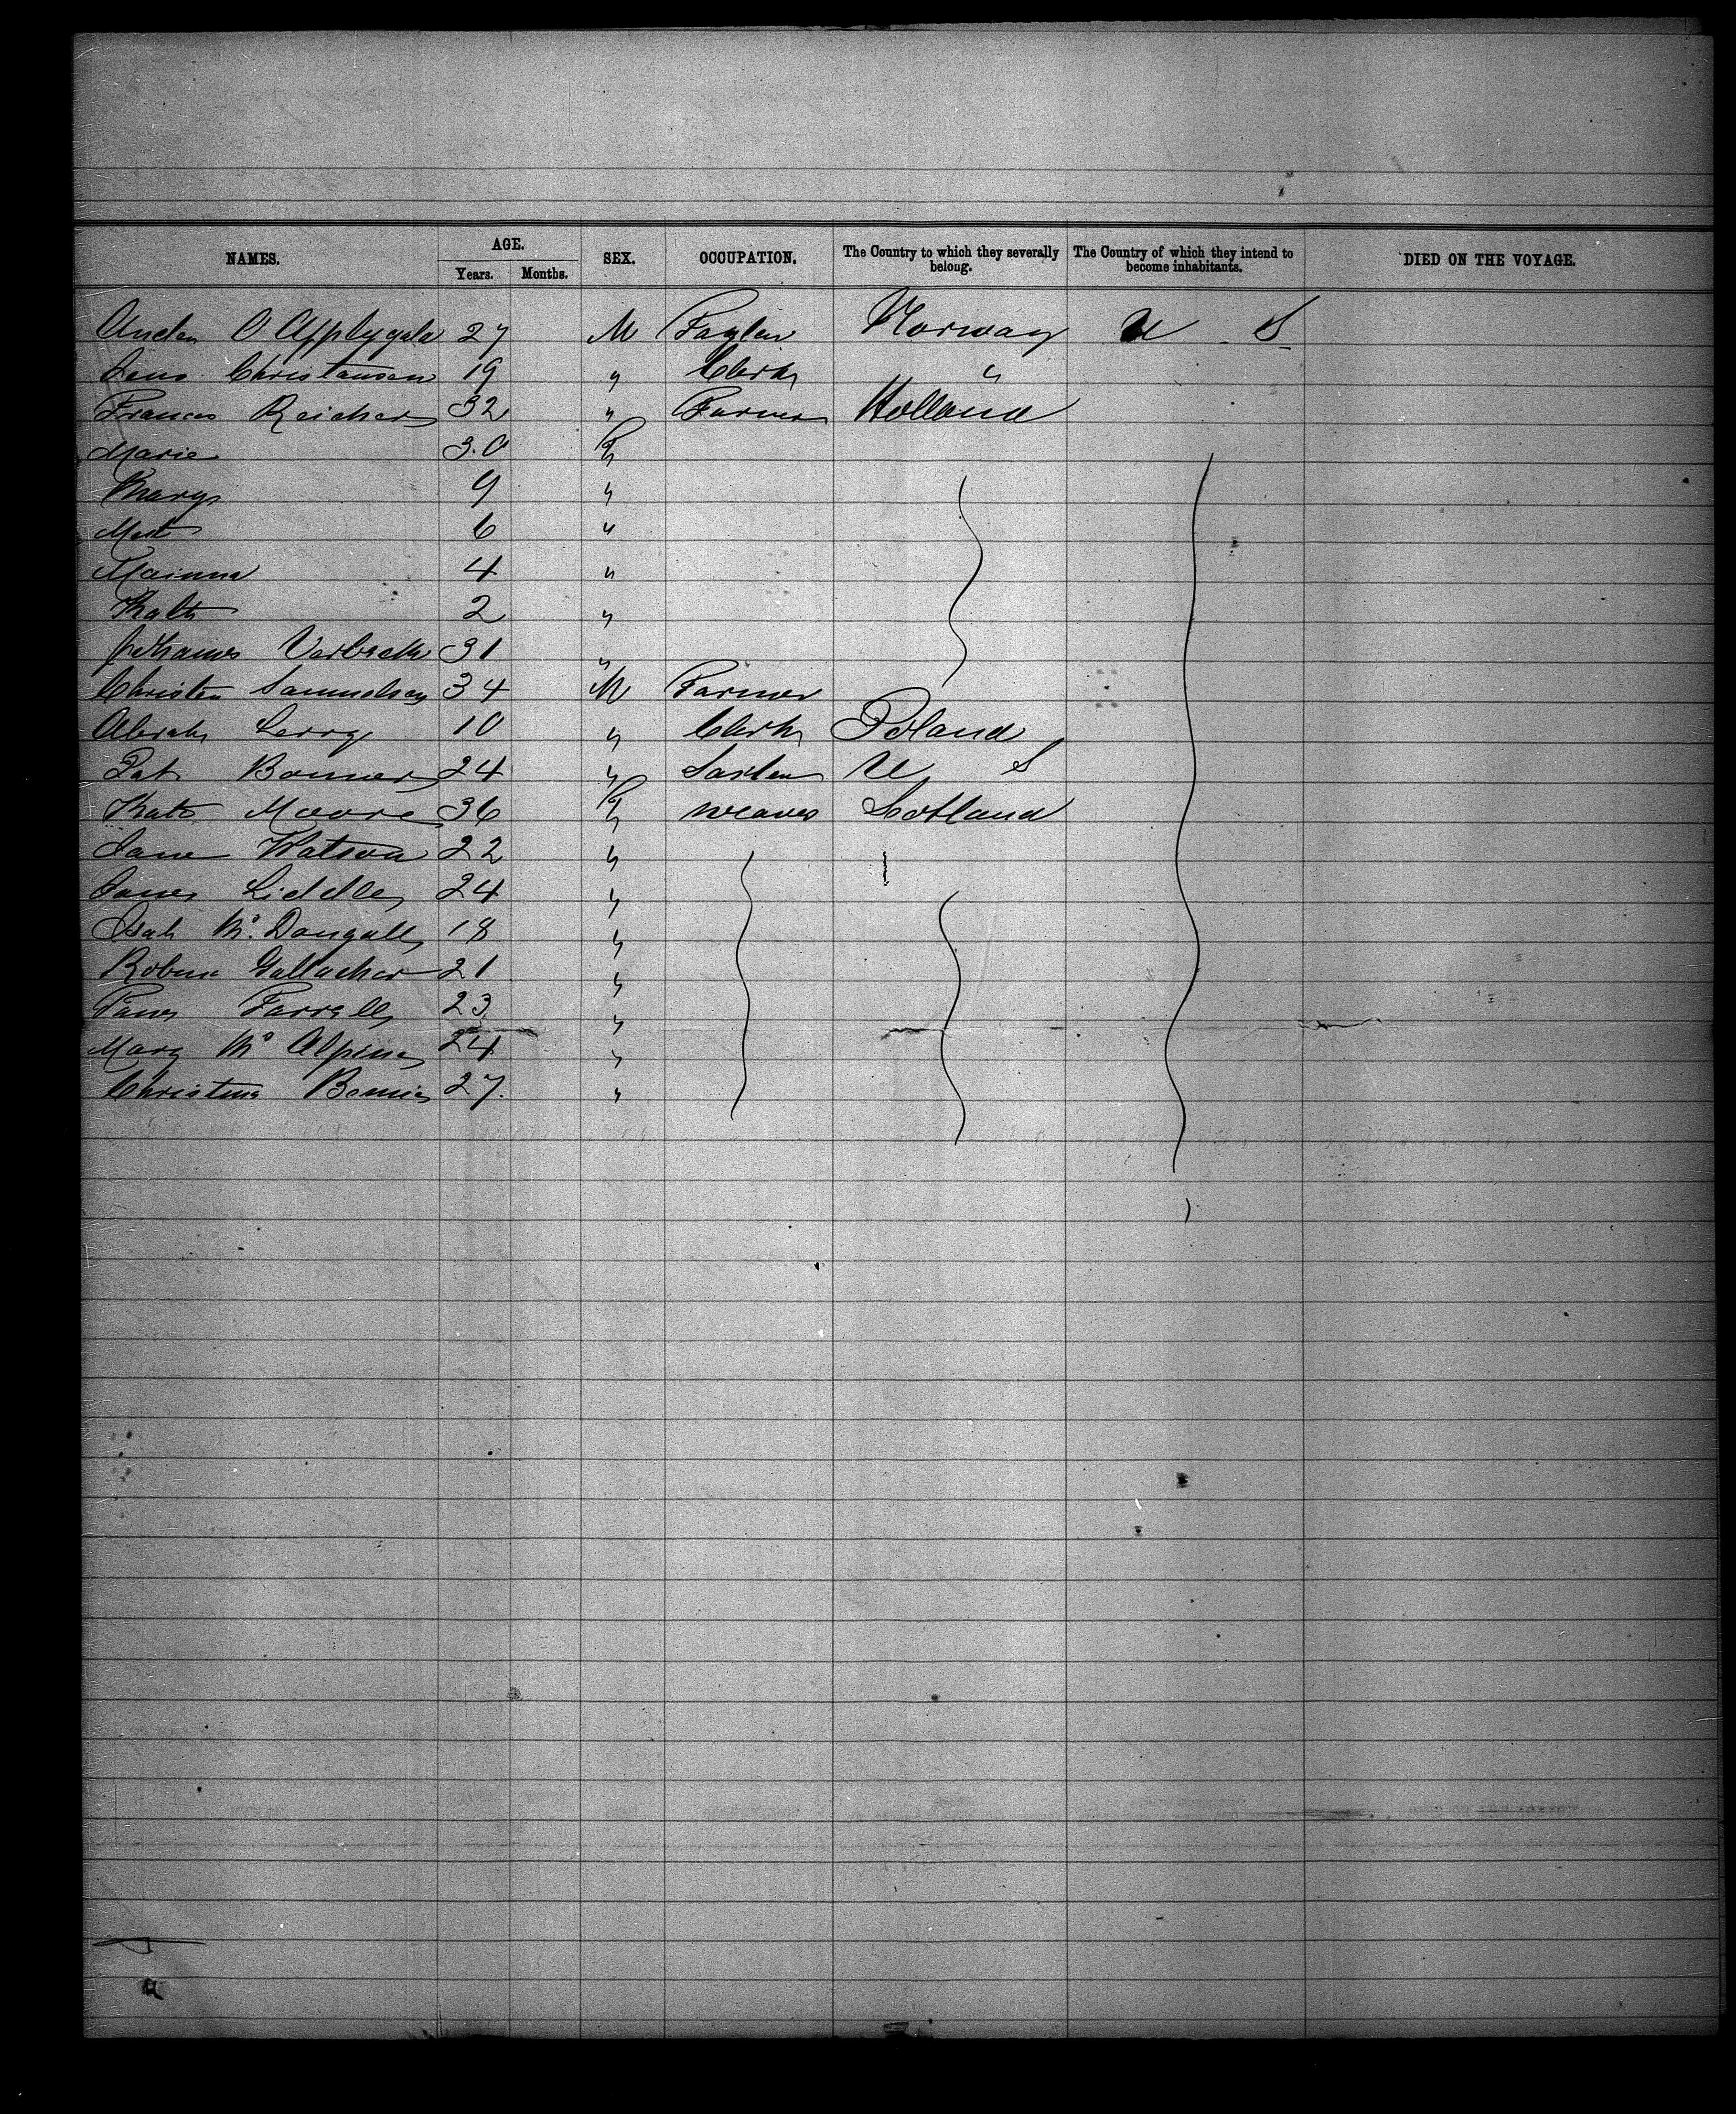 NAMES. AGE. SEX. OCCUPATION. The Country to which they severally belong. The Country of which they intend to become inhabitants. DIED ON THE VOYAGE.
Years. Months.
O Applygate 27 M Norway U S
Jens Christansen 19 " Clerk "
Frances Reichers 32 " Farmer Holland
Marie 30 F
Mary 9 "
6 "
4 "
2 "
31 "
Christen Samuelsen 34 M Farmer
10 " Clerk Poland
Pat Bonner 24 " U S
Kate Moore 36 F weaver Scotland
Jane Watson 22 "
Liddle 24 "
Isab McDougall 18 "
Robina Gallacher 21 "
Farrell 23 "
Mary McAlpine 24 "
Christina 27. "